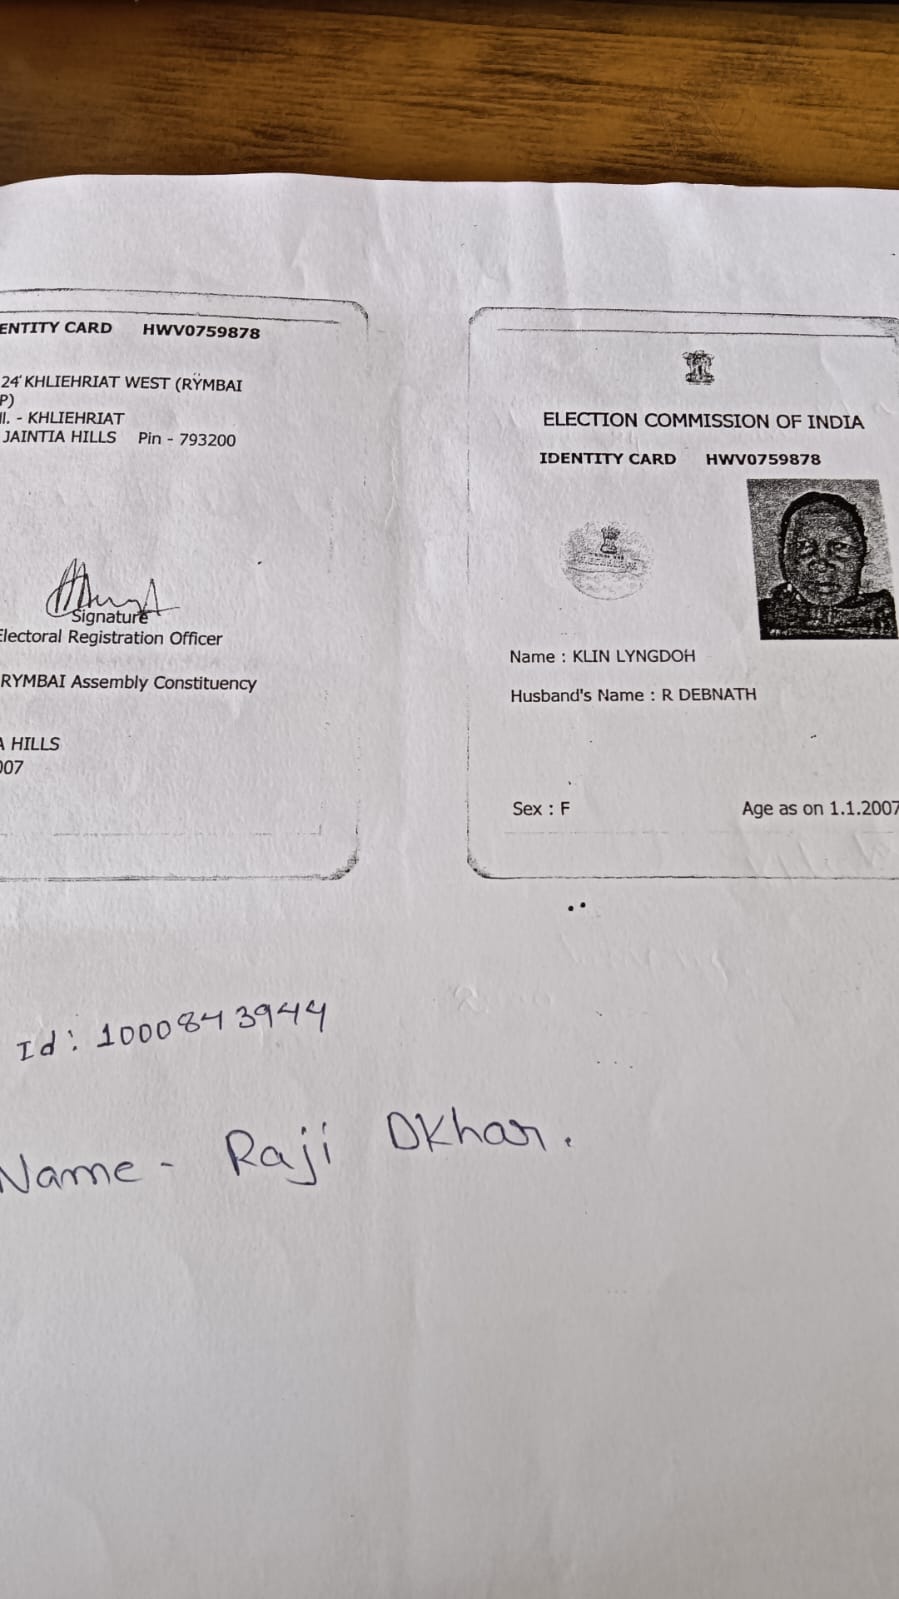 ENTITY CARD HWV0759878
24 KHLIEHRIAT WEST (RYMBAI
P)
ll. - KHLIEHRIAT
JAINTIA HILLS Pin - 793200
Signature
Electoral Registration Officer
RYMBAI Assembly Constituency
A HILLS
007
ELECTION COMMISSION OF INDIA
IDENTITY CARD HWV0759878
Name : KLIN LYNGDOH
Husband's Name : R DEBNATH
Sex : F Age as on 1.1.2007
Id: 1000843944
Name - Raji Dkhar.